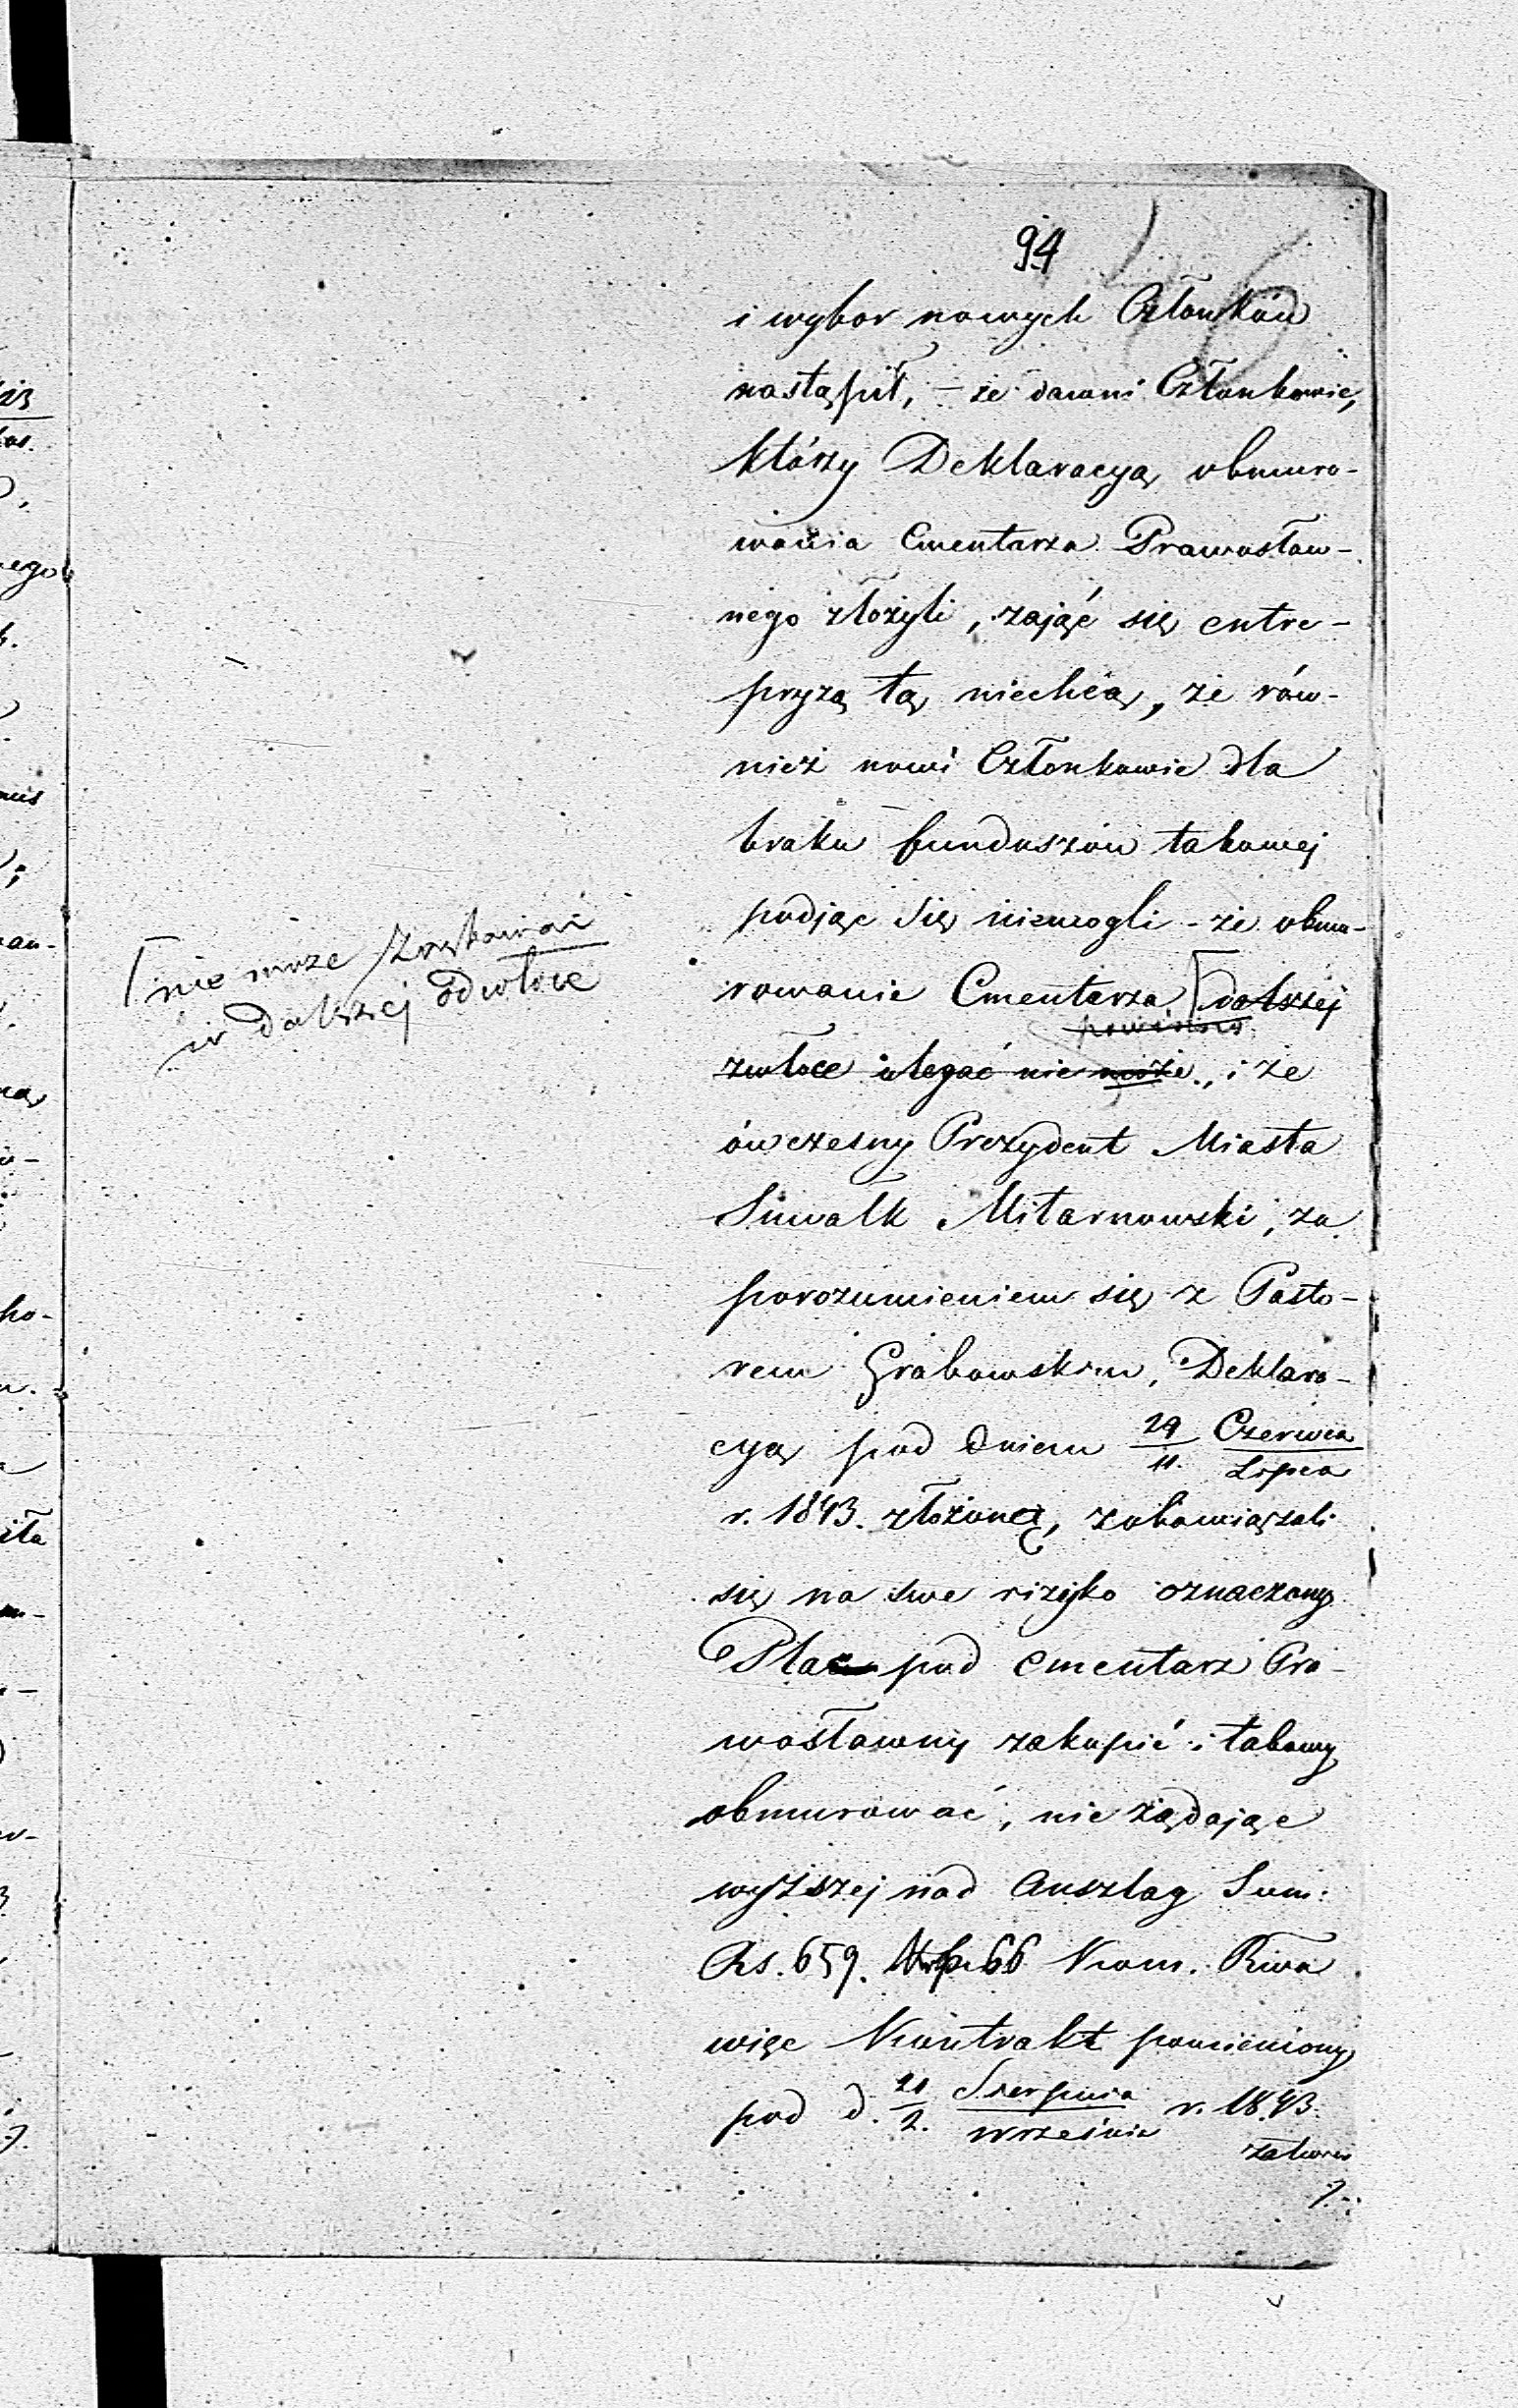 94
i wybor nowych Członków
nastąpił, – że dawni Członkowie,
którzy Deklaracyą obmuro-
wania Cmentarza Prawosław-
nego złożyli, zająć się entre-
pryzą tą niechcą, że rów-
nież nowi Członkowie dla
braku funduszów takowej
podjąć się niemogli – że obmu-
rowanie Cmentarza dalszej
powinno
zwłoce ulegać nie może, i że
nie może
w dalszej odwłoce
ówczesny Prezydent Miasta
Suwałk Mitarnowski, za
porozumieniem się z Pasto-
rem Grabowskim, Deklara-
cyą pod dniem 29/11. Czerwca/Lipca
r. 1843. złożoną, zobowiązali
się na swe rizyko oznaczony
Plac pod cmentarz Pra-
wosławny zakupić i takowy
obmurować, nie żądając
wyższej nad Anszlag Sum:
Rs. 659. kop. 66
więc Kontrakt pomieniony
pod d. 21/2. Sierpnia/Września r. 1843.